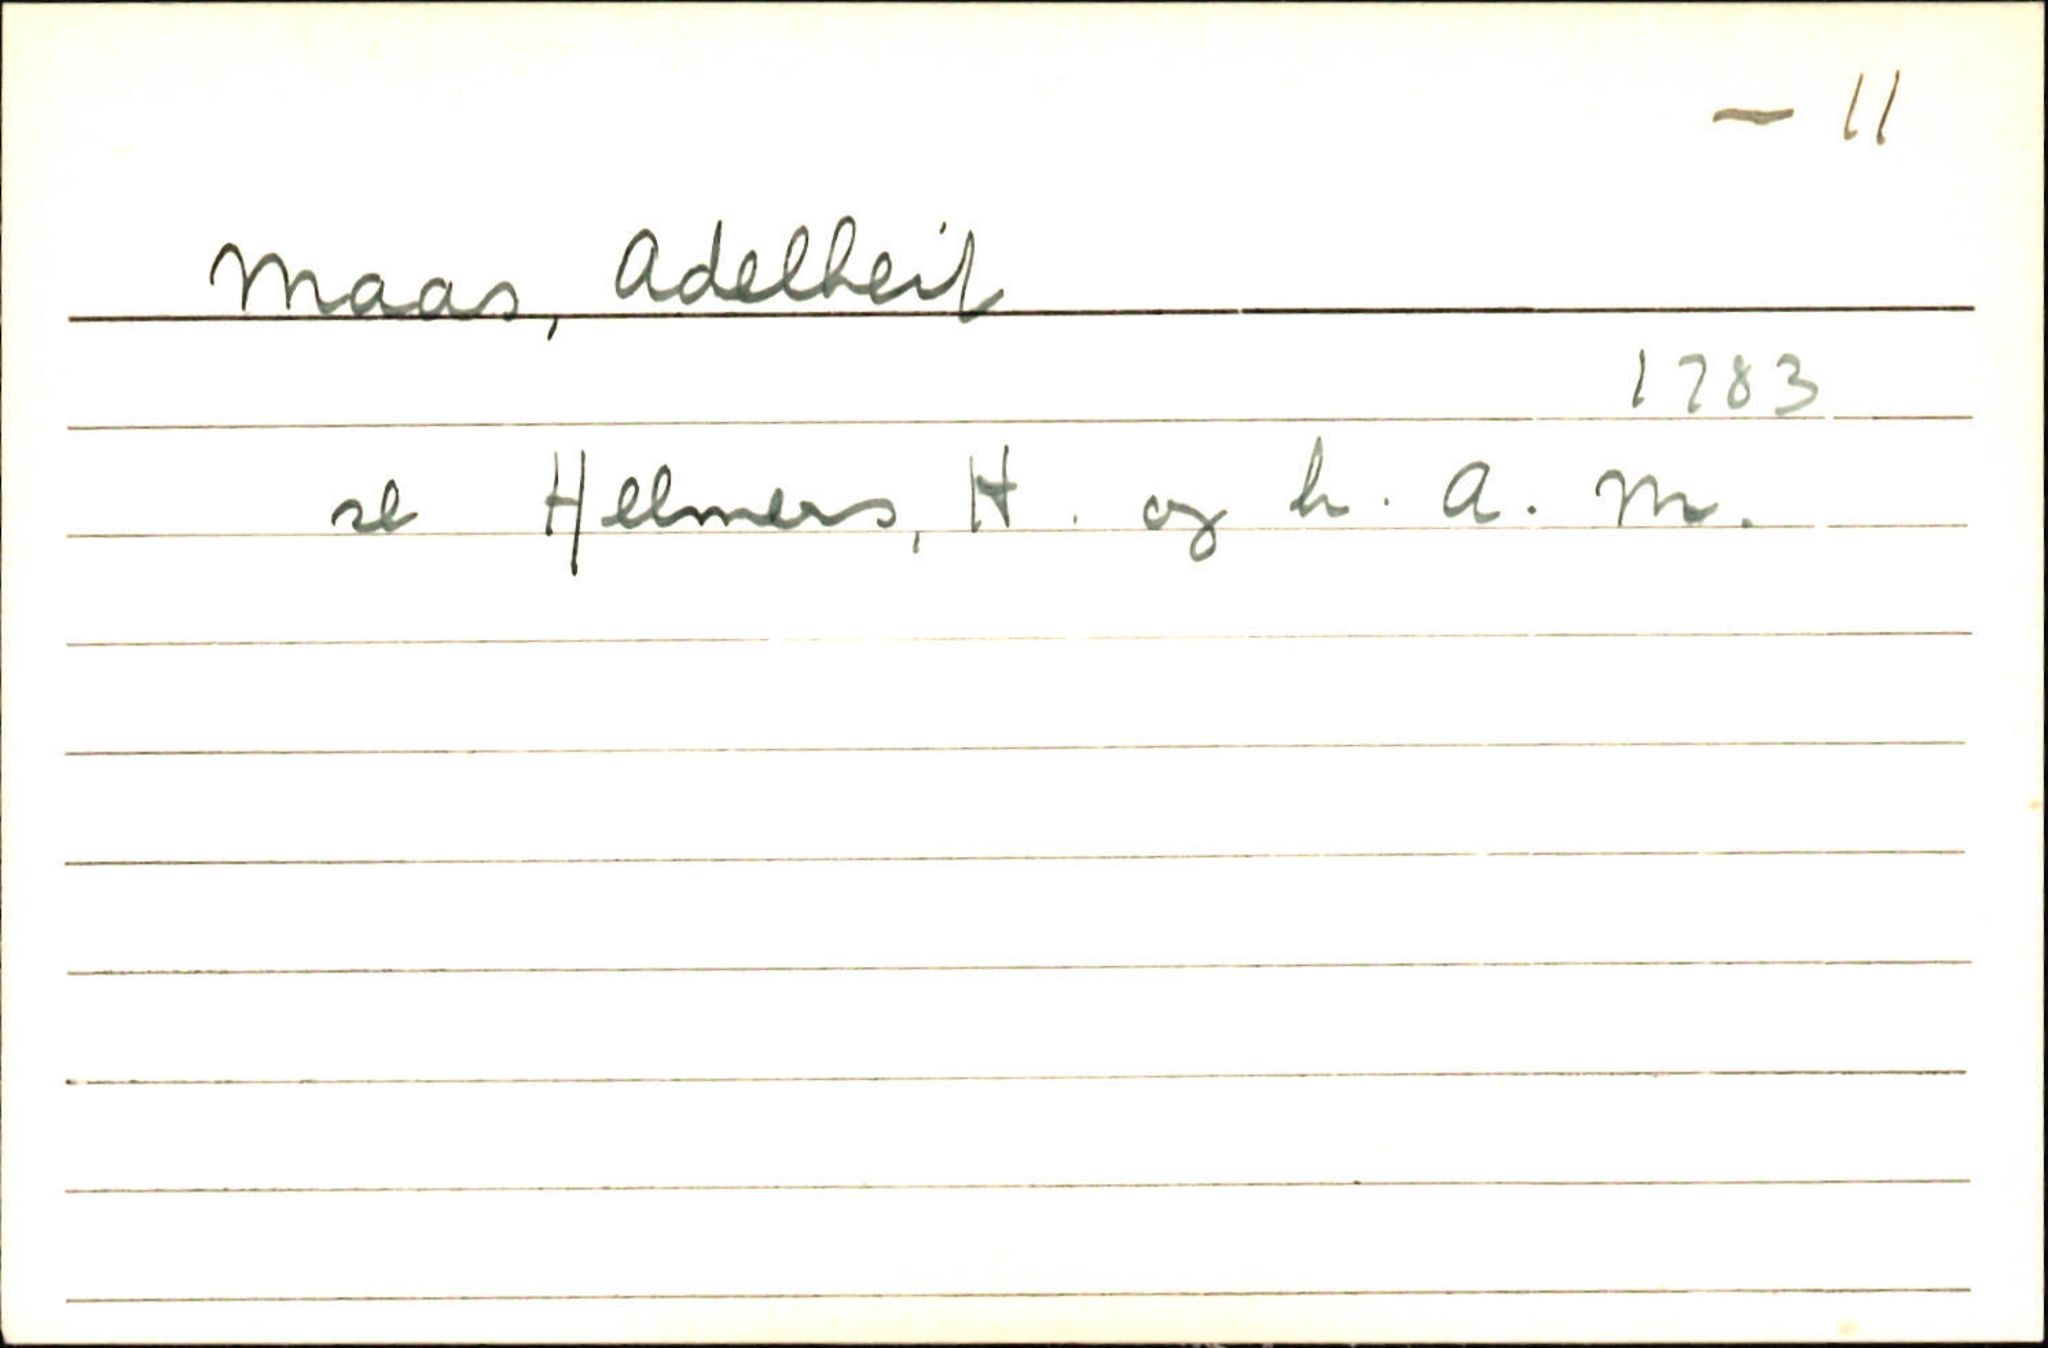 — 11
Maas, Adelheit
1783
se Helmers, H. og h. A. M.